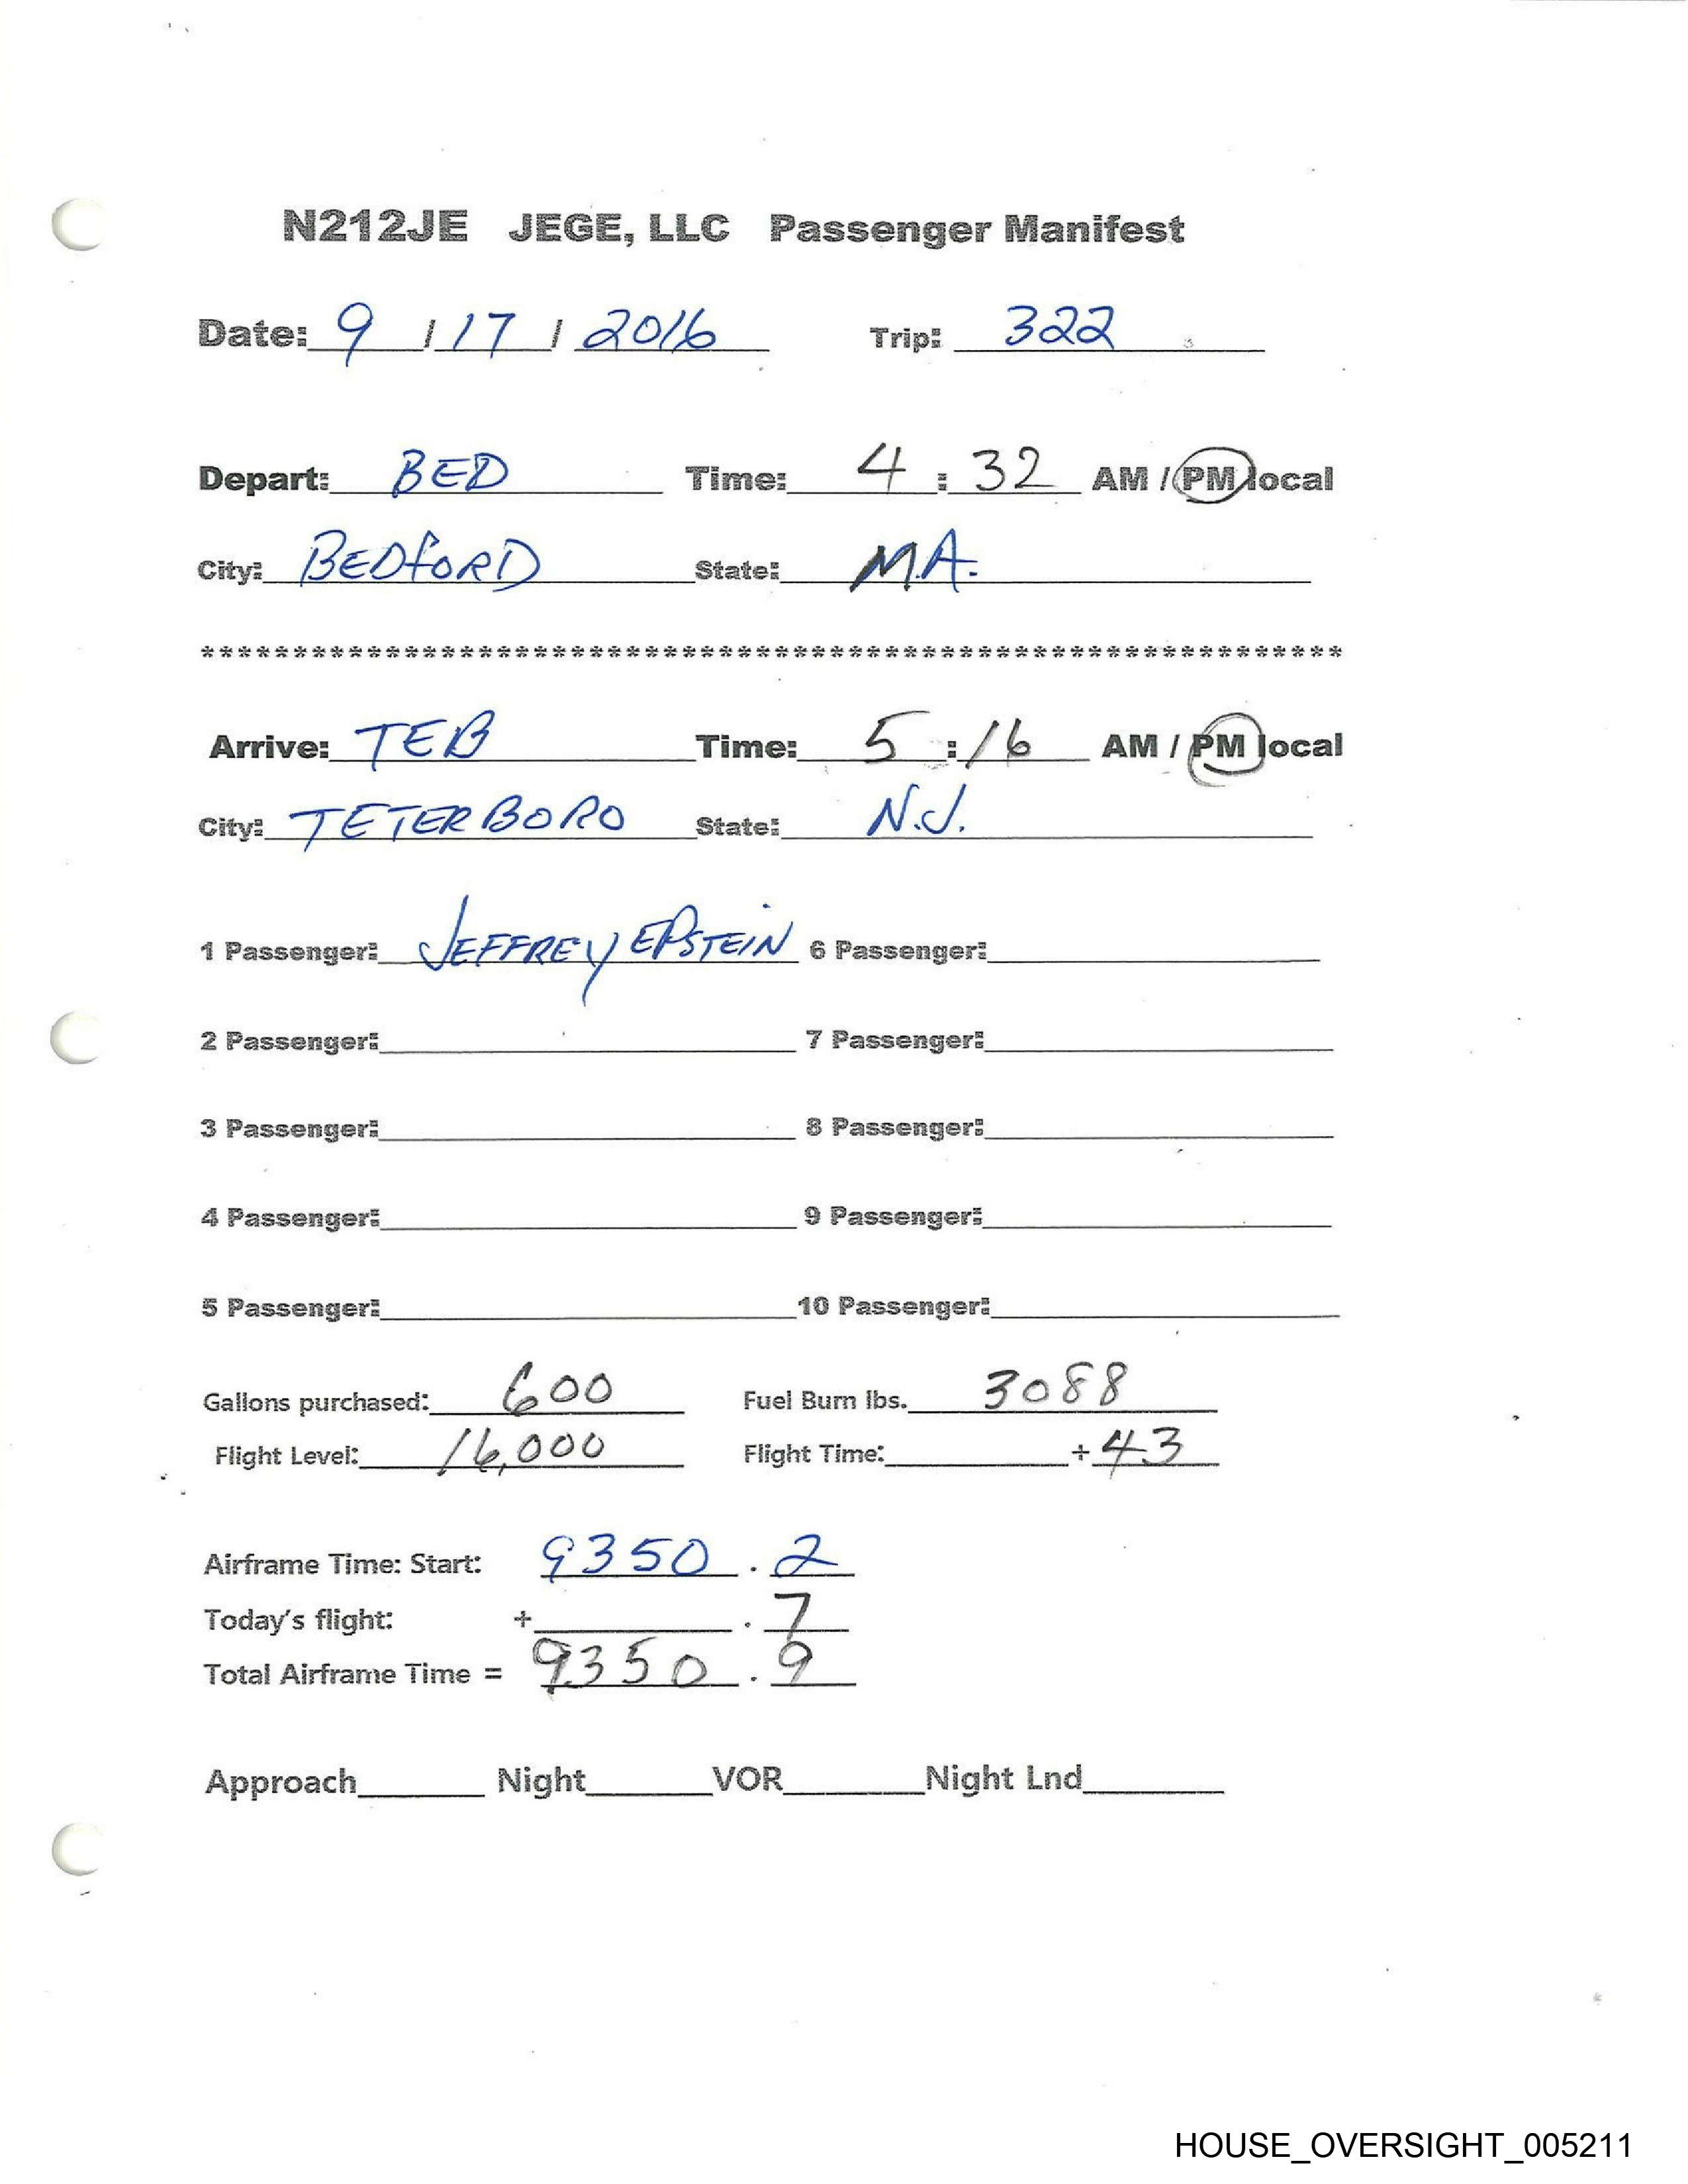 N212JE JEGE, LLC Passenger Manifest
Date: 9 / 17 / 2016 Trip: 322
Depart: BED Time: 4 : 32 AM / PM local
City: BEDFORD State: M.A.
**************************************************************
Arrive: TEB Time: 5 : 16 AM / PM local
City: TETERBORO State: N.J.
1 Passenger: JEFFREY EPSTEIN 6 Passenger:
2 Passenger: 7 Passenger:
3 Passenger: 8 Passenger:
4 Passenger: 9 Passenger:
5 Passenger: 10 Passenger:
Gallons purchased: 600 Fuel Burn lbs. 3088
Flight Level: 16,000 Flight Time: + 43
Airframe Time: Start: 9350 . 2
Today's flight: + . 7
Total Airframe Time = 9350 . 9
Approach Night VOR Night Lnd
HOUSE_OVERSIGHT_005211